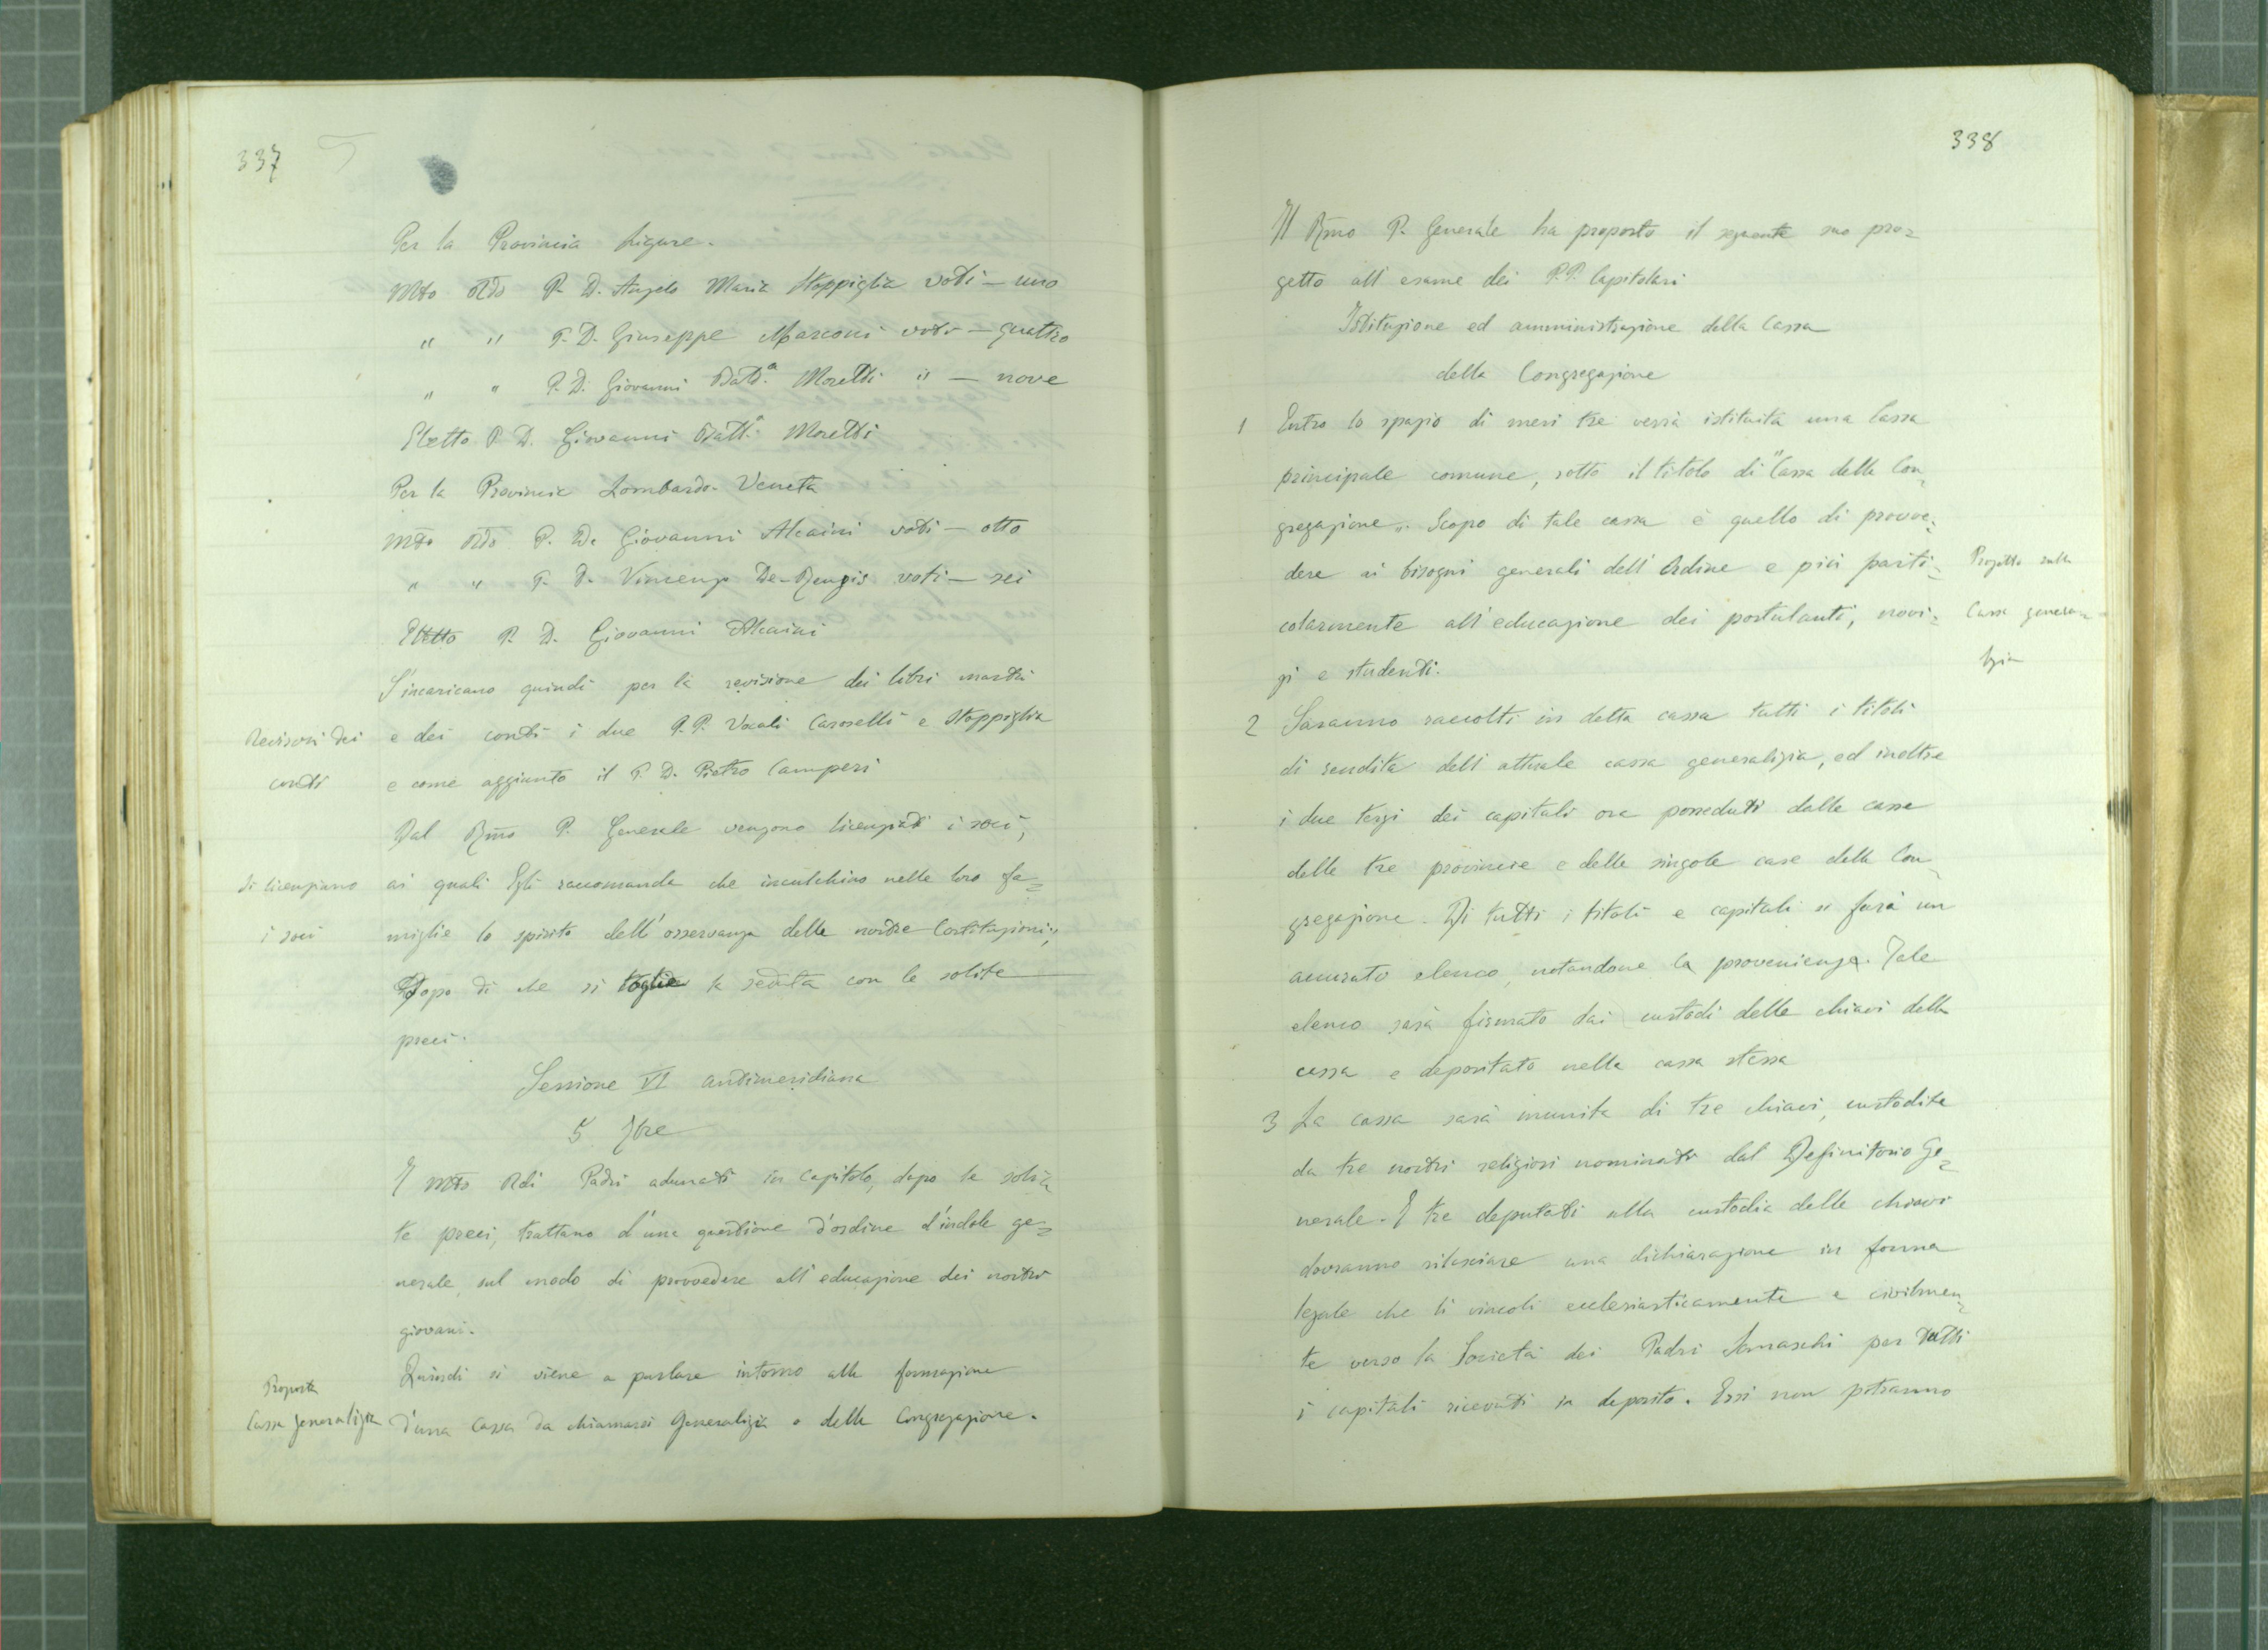 337
Per la Provincia Ligure.
Mto Rdo P. D. Angelo Maria Stoppiglia voti — uno
" " P. D. Giuseppe Marconi voti — quattro
" " P. D. Giovanni Batt.a Moretti " — nove
Eletto P. D. Giovanni Batt.a Moretti
Per la Provincia Lombardo-Veneta
Mto Rdo P. D. Giovanni Alcaini voti — otto
" " P. D. Vincenzo De-Renzis voti — sei
Eletto P. D. Giovanni Alcaini
S'incaricano quindi per la revisione dei libri mastri
Revisori dei
conti
e dei conti i due P.P. Vocali Caroselli e Stoppiglia
e come aggiunto il P. D. Pietro Camperi
Dal Rmo P. Generale vengono licenziati i soci,
Si licenziano
i soci
ai quali Egli raccomanda che inculchino nelle loro fa=
miglie lo spirito dell'osservanza delle nostre Costituzioni;
Dopo di che si toglie la seduta con le solite
preci.
Sessione VI antimeridiana
5 7bre
I Mto Rdi Padri adunati in Capitolo, dopo le soli=
te preci, trattano d'una questione d'ordine d'indole ge=
nerale, sul modo di provvedere all'educazione dei nostri
giovani.
Proposta
Cassa generalizia
Quindi si viene a parlare intorno alla formazione
d'una Cassa da chiamarsi Generalizia o della Congregazione.
338
Il Rmo P. Generale ha proposto il seguente suo pro=
getto all'esame dei P.P. Capitolari
Istituzione ed amministrazione della Cassa
della Congregazione
1 Entro lo spazio di mesi tre verrà istituita una Cassa
principale comune, sotto il titolo di "Cassa della Con=
gregazione". Scopo di tale cassa è quello di provve=
dere ai bisogni generali dell'Ordine e più parti=
colarmente all'educazione dei postulanti, novi=
zi e studenti.
Progetto sulla
Cassa genera=
lizia
2 Saranno raccolti in detta cassa tutti i titoli
di rendita dell'attuale cassa generalizia, ed inoltre
i due terzi dei capitali ora posseduti dalle casse
delle tre provincie e delle singole case della Con=
gregazione. Di tutti i titoli e capitali si farà un
accurato elenco, notandone la provenienza. Tale
elenco sarà firmato dai custodi delle chiavi della
cassa e depositato nella cassa stessa
3 La cassa sarà munita di tre chiavi, custodite
da tre nostri religiosi nominati dal Definitorio Ge=
nerale. I tre deputati alla custodia delle chiavi
dovranno rilasciare una dichiarazione in forma
legale che li vincoli ecclesiasticamente e civilmen=
te verso la Società dei Padri Somaschi per tutti
i capitali ricevuti in deposito. Essi non potranno